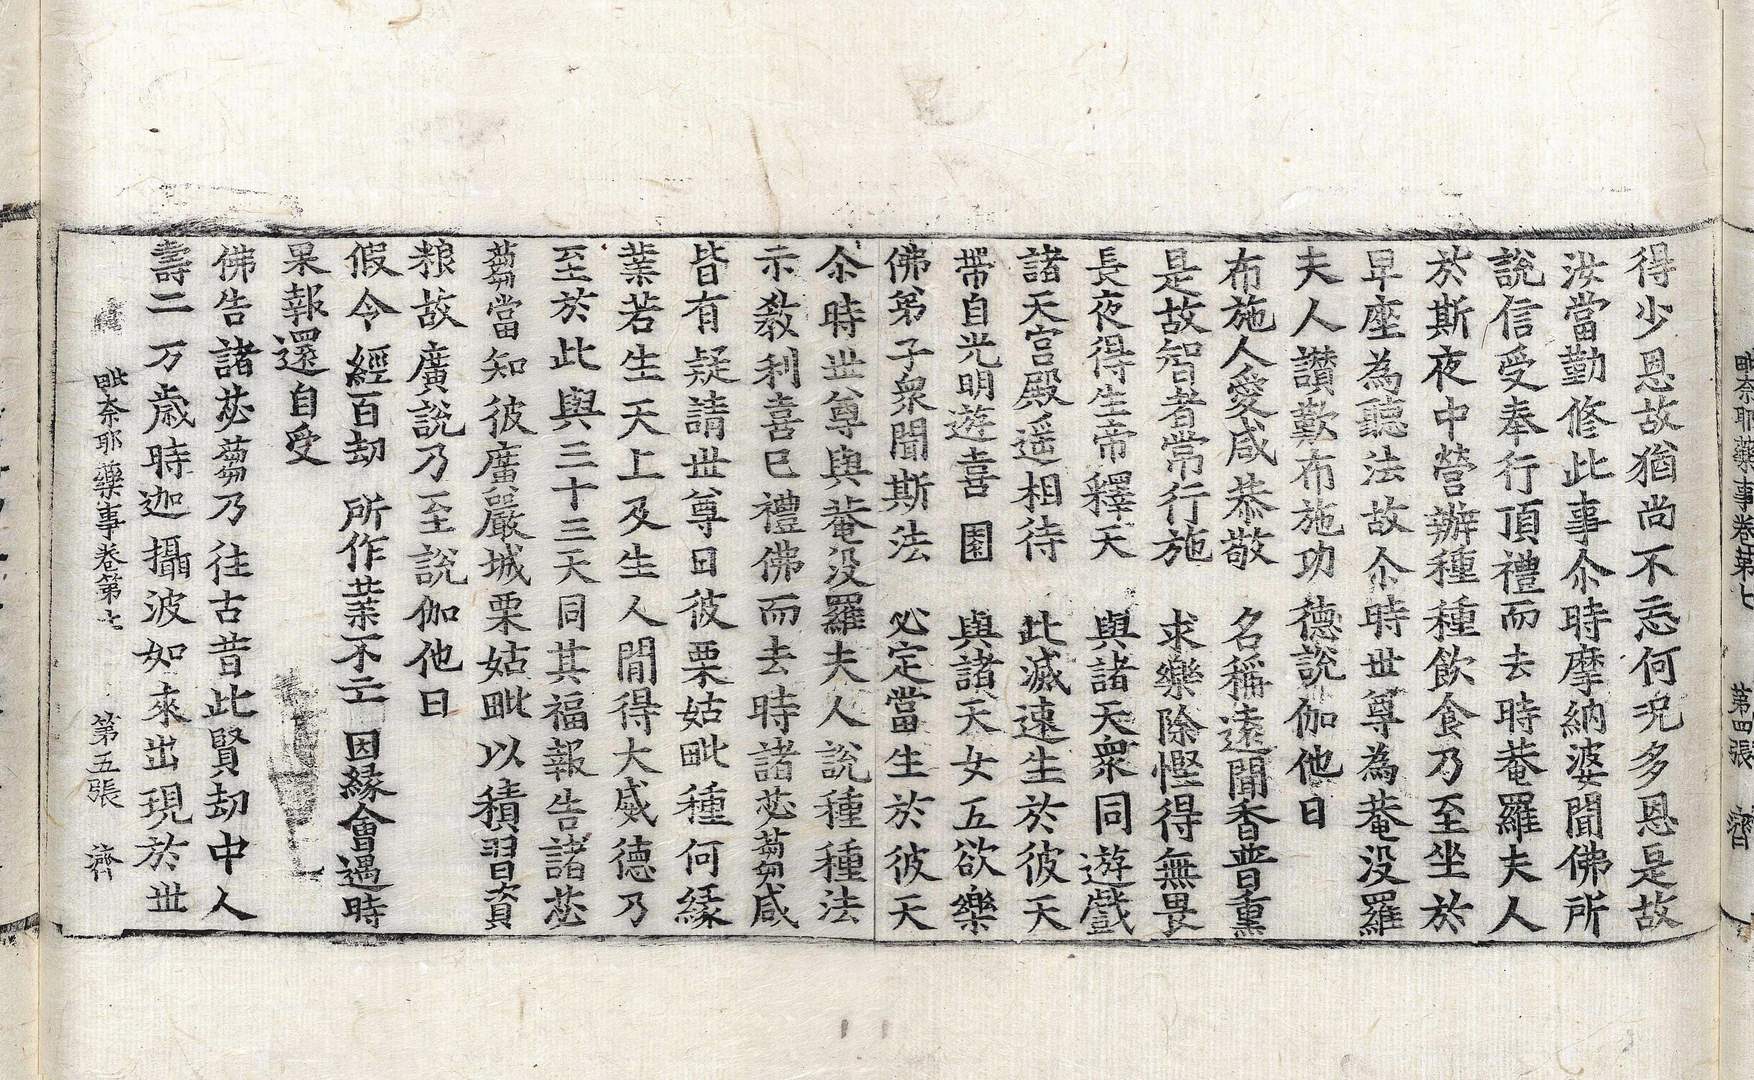 毗奈耶藥事卷第七　第四張　濟
得少恩故猶尚不忘何況多恩是故
汝當勤修此事尒時摩納婆聞佛所
說信受奉行頂禮而去時菴羅夫人
於斯夜中營辦種種飲食乃至坐於
早座為聽法故尒時世尊為菴没羅
夫人讃歎布施功德說伽他曰
布施人愛咸恭敬　名稱遠聞香普熏
是故智者常行施　求樂除慳得無畏
長夜得生帝釋天　與諸天衆同遊戲
諸天宮殿遥相待　此滅速生於彼天
帶自光明遊喜園　與諸天女五欲樂
佛弟子衆聞斯法　必定當生於彼天
尒時世尊與菴没羅夫人說種種法
示教利喜已禮佛而去時諸苾蒭咸
皆有疑請世尊曰彼栗姑毗種何緣
業若生天上及生人間得大威德乃
至於此與三十三天同其福報告諸苾
蒭當知彼廣嚴城栗姑毗以積習資
粮故廣說乃至說伽他曰
假令經百劫　所作業不亡　因緣會遇時
果報還自受
佛告諸苾蒭乃往古昔此賢劫中人
壽二万歲時迦攝波如來出現於世
毗奈耶藥事卷第七　第五張　濟